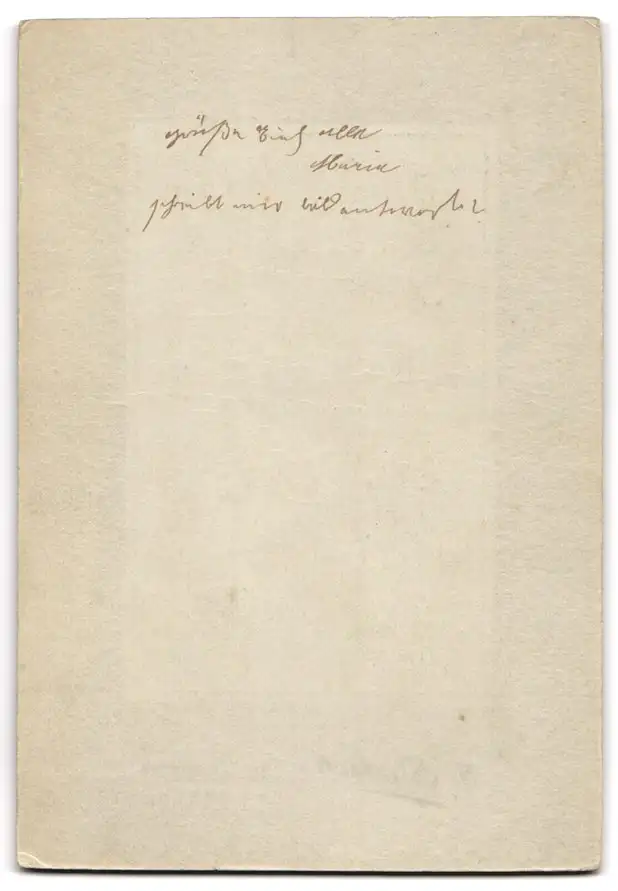 grüße Eich alle
Maria
schreibt mir bald antwort